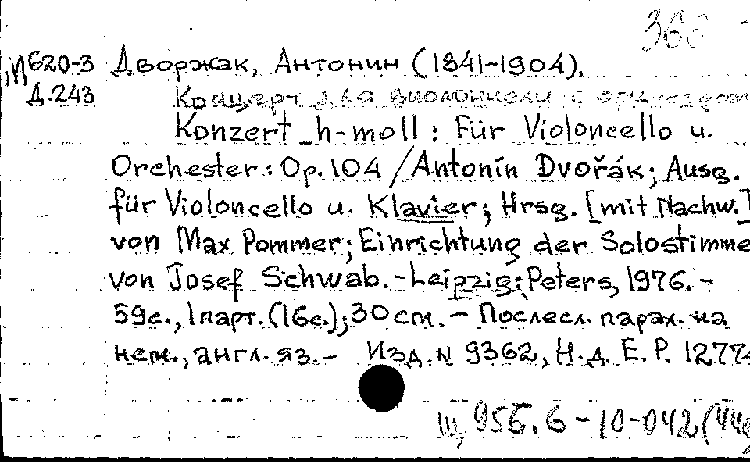 366
Щ620-3 Дворжак, Антонин (1841-1904).
Д.243
Концерт для виолончели с оркестром
Konzert h-moll : Für Violoncello u.
Orchester : Op. 104 / Antonín Dvořák; Ausg.
für Violoncello u. Klavier; Hrsg. [mit Nachw.]
von Max Pommer; Einrichtung der Solostimme
von Josef Schwab. - Leipzig: Peters, 1976. -
59с., 1парт. (16с.); 30см. - Послесл. парал. на
нем., англ. яз. - Изд. N 9362, Н.д. E.P. 1277
Щ 956.6-10-042(44